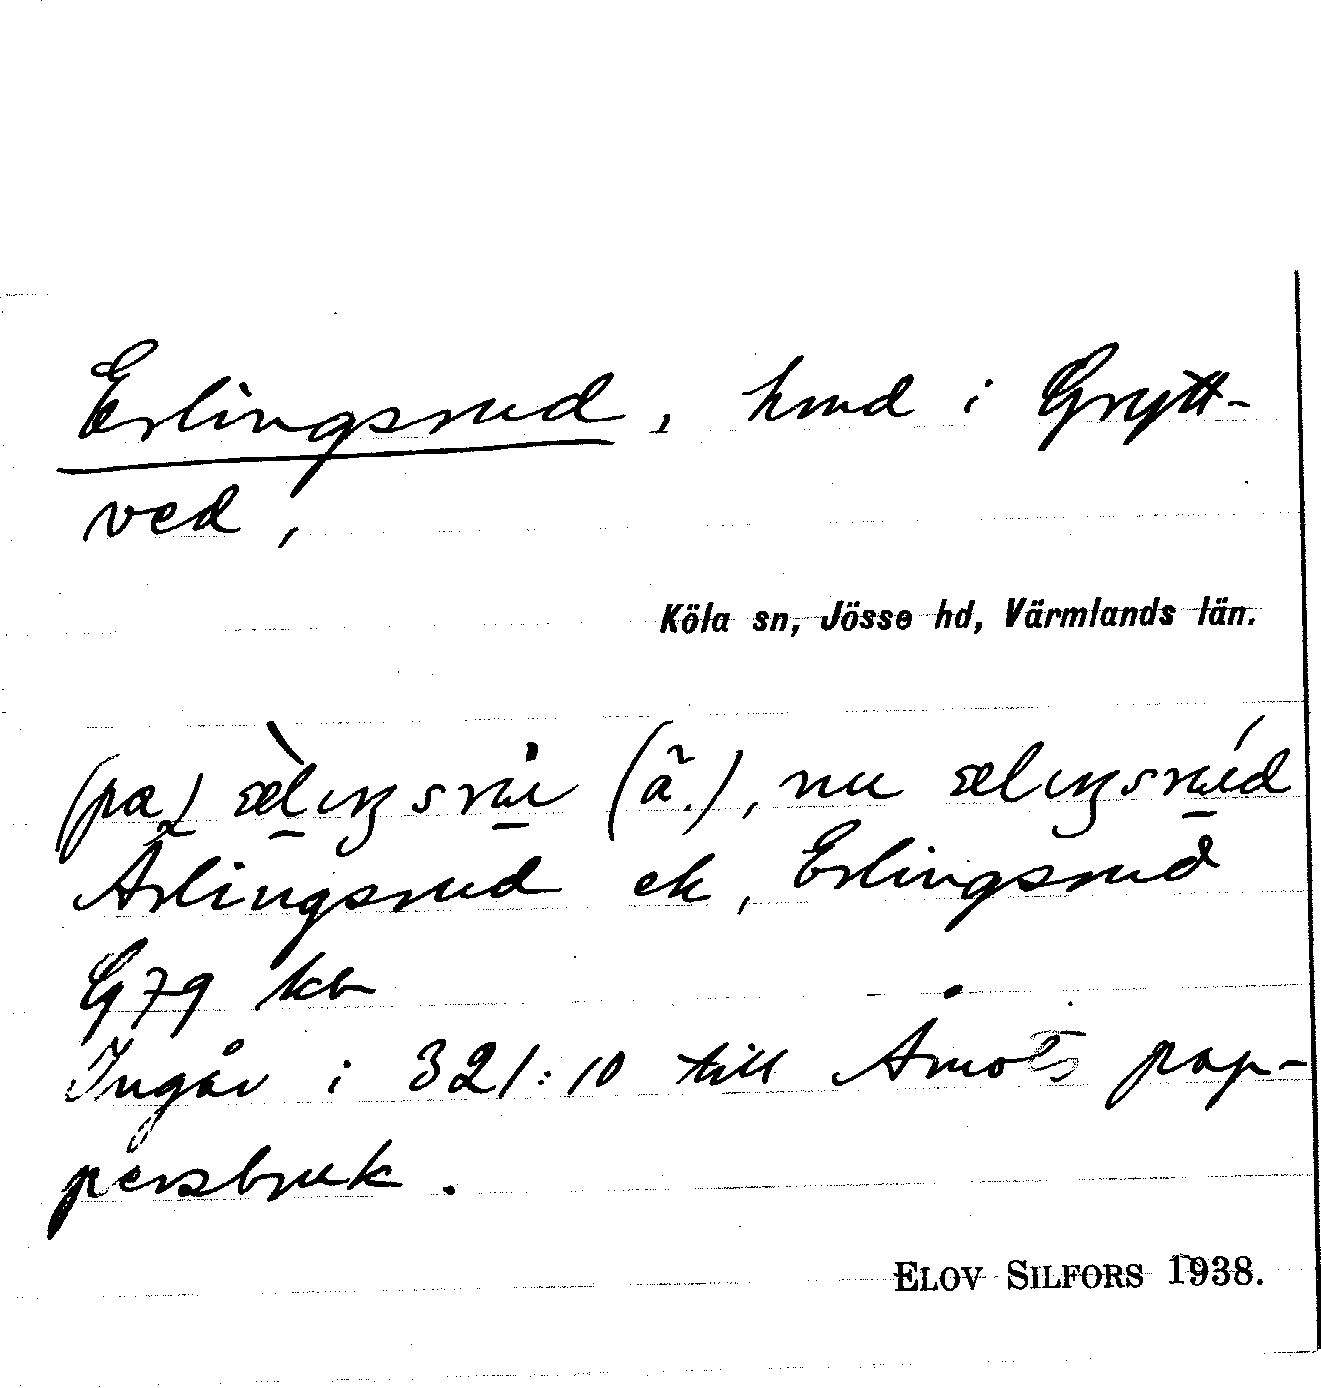 Erlingsrud, hmd i Grytt-
ved,
Köla sn, Jösse hd, Värmlands län.
(pa) (ã.), nu
Ärlingsrud ek, Erlingsrud
G79 kb
Ingår i 321:10 till Åmots pap-
persbruk.
ELOV SILFORS 1938.